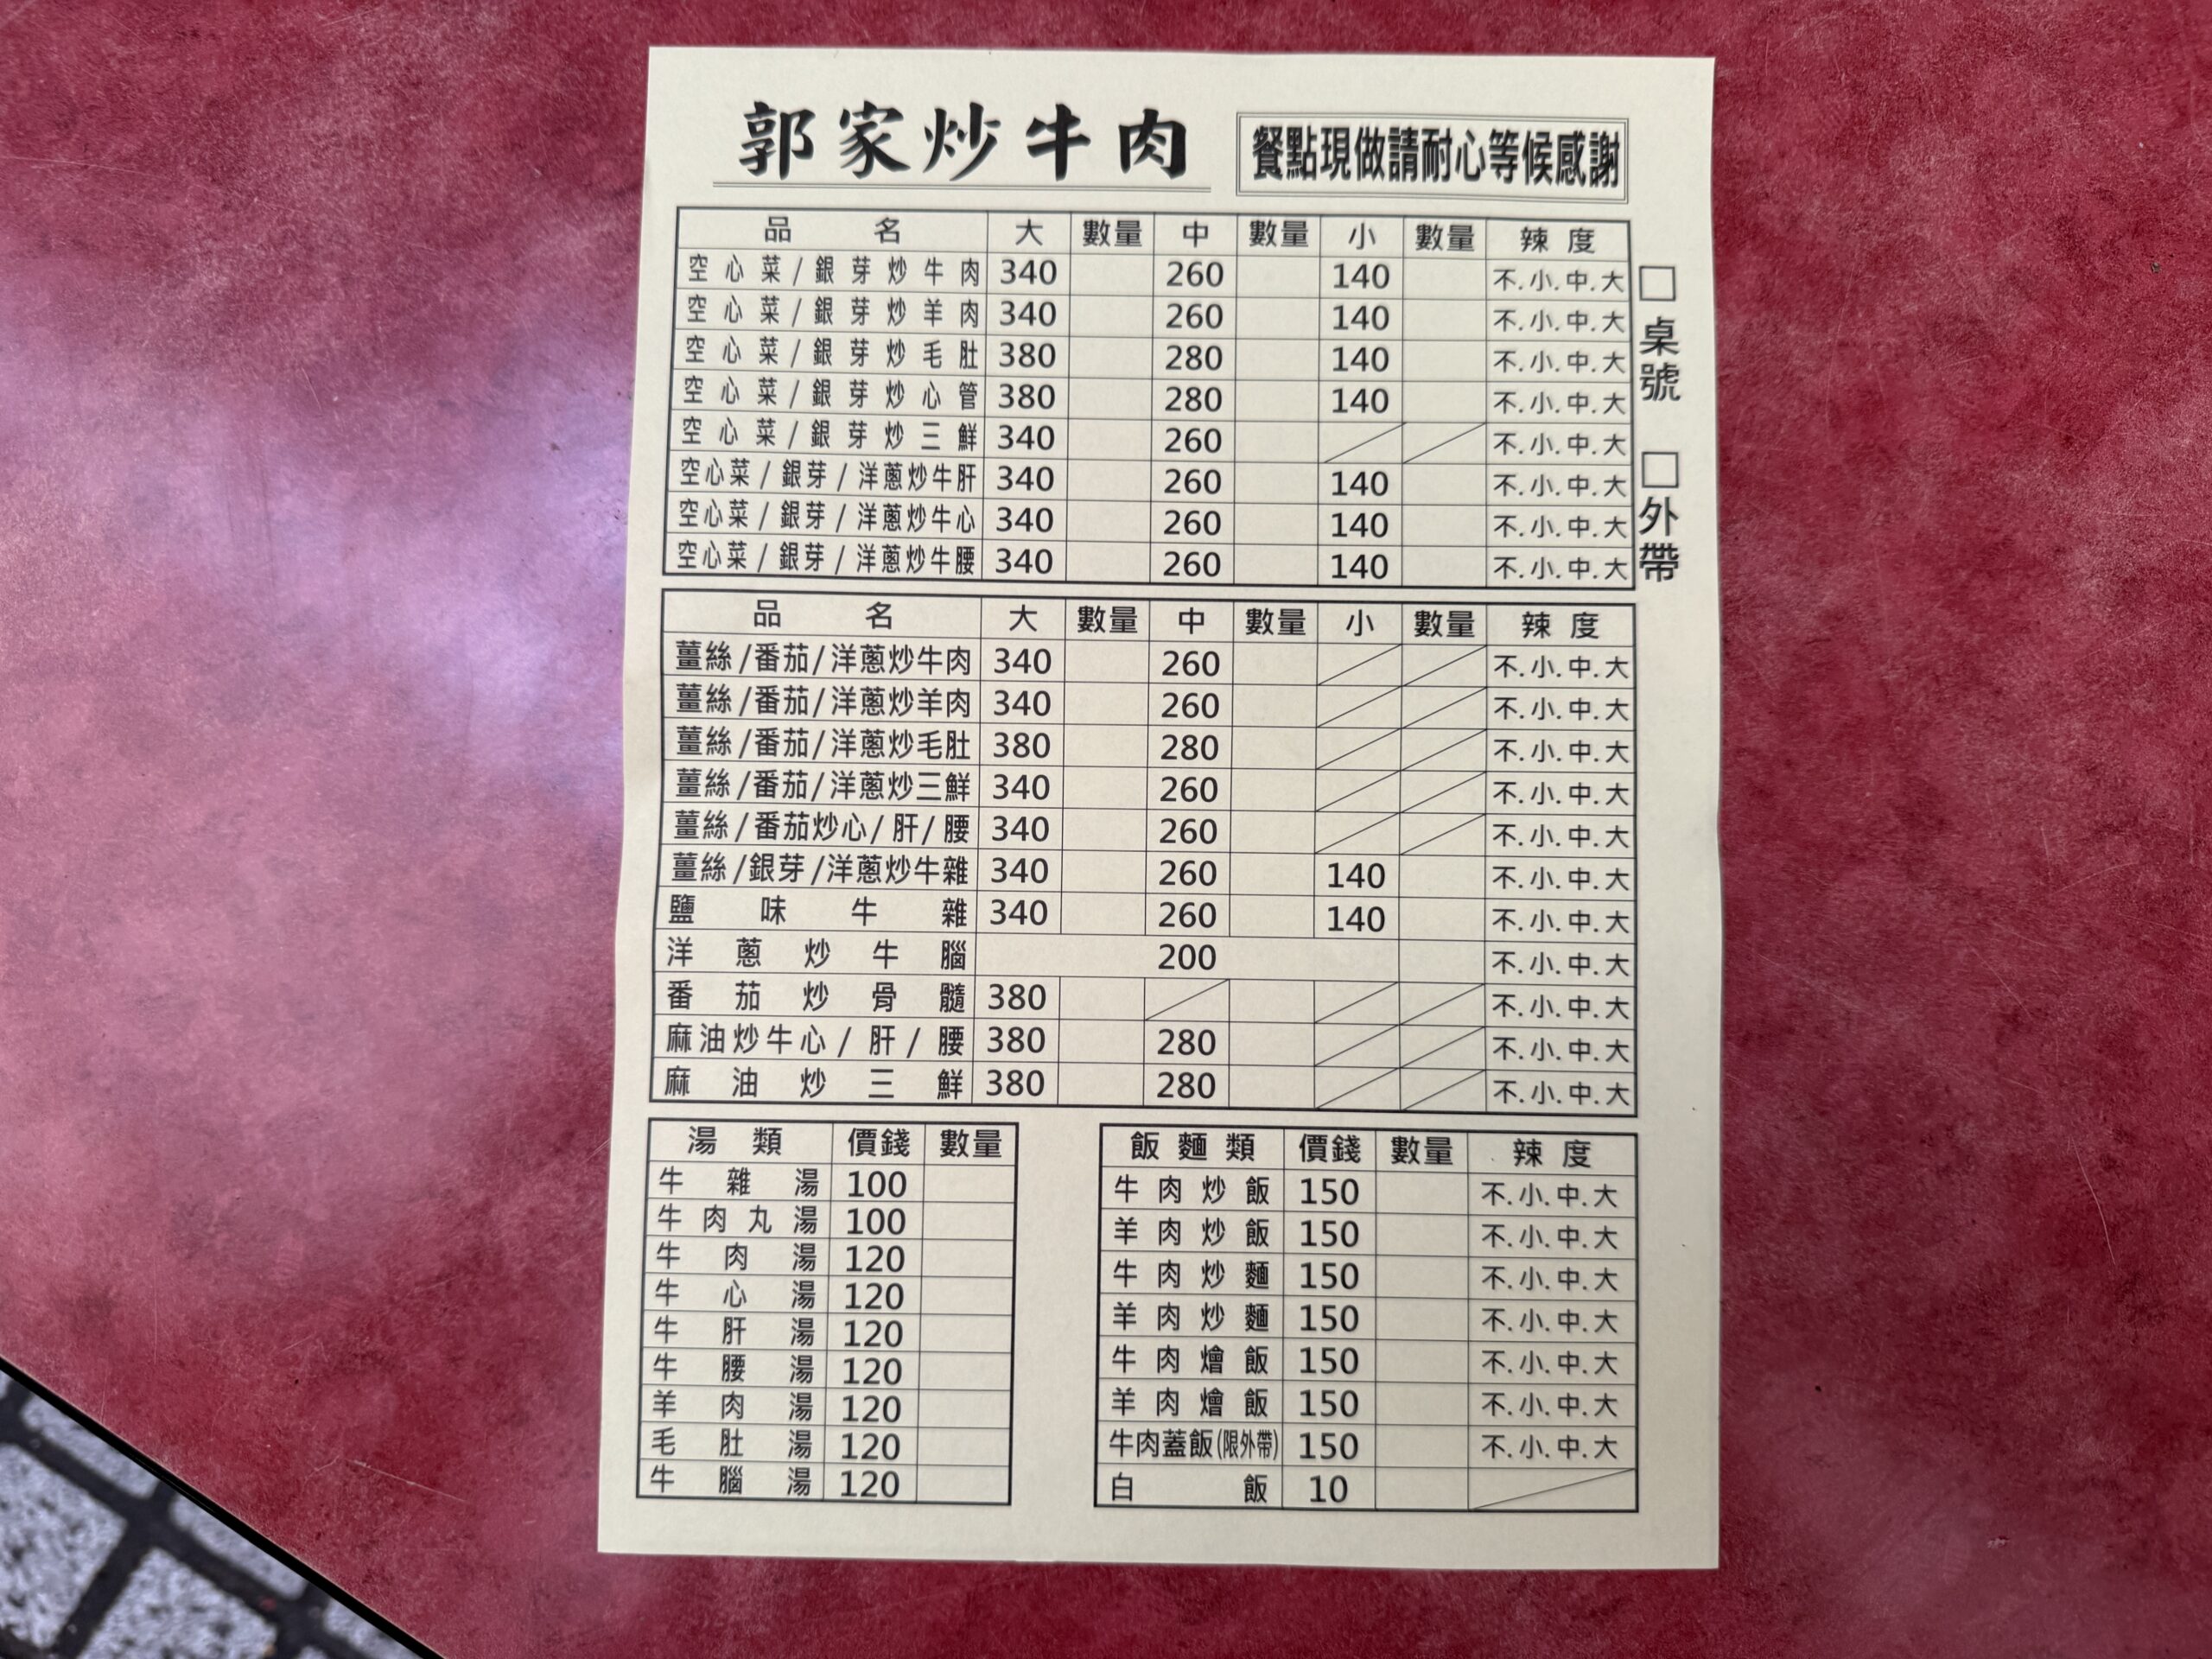 郭家炒牛肉
餐點現做請耐心等候感謝
品名 大 數量 中 數量 小 數量 辣度
空心菜/銀芽炒牛肉 340 260 140 不.小.中.大
空心菜/銀芽炒羊肉 340 260 140 不.小.中.大
空心菜/銀芽炒毛肚 380 280 140 不.小.中.大
空心菜/銀芽炒心管 380 280 140 不.小.中.大
空心菜/銀芽炒三鮮 340 260 不.小.中.大
空心菜/銀芽/洋蔥炒牛肝 340 260 140 不.小.中.大
空心菜/銀芽/洋蔥炒牛心 340 260 140 不.小.中.大
空心菜/銀芽/洋蔥炒牛腰 340 260 140 不.小.中.大
□桌號
□外帶
品名 大 數量 中 數量 小 數量 辣度
薑絲/番茄/洋蔥炒牛肉 340 260 不.小.中.大
薑絲/番茄/洋蔥炒羊肉 340 260 不.小.中.大
薑絲/番茄/洋蔥炒毛肚 380 280 不.小.中.大
薑絲/番茄/洋蔥炒三鮮 340 260 不.小.中.大
薑絲/番茄炒心/肝/腰 340 260 不.小.中.大
薑絲/銀芽/洋蔥炒牛雜 340 260 140 不.小.中.大
鹽味牛雜 340 260 140 不.小.中.大
洋蔥炒牛腦 200 不.小.中.大
番茄炒骨髓 380 不.小.中.大
麻油炒牛心/肝/腰 380 280 不.小.中.大
麻油炒三鮮 380 280 不.小.中.大
湯類 價錢 數量
牛雜湯 100
牛肉丸湯 100
牛肉湯 120
牛心湯 120
牛肝湯 120
牛腰湯 120
羊肉湯 120
毛肚湯 120
牛腦湯 120
飯麵類 價錢 數量 辣度
牛肉炒飯 150 不.小.中.大
羊肉炒飯 150 不.小.中.大
牛肉炒麵 150 不.小.中.大
羊肉炒麵 150 不.小.中.大
牛肉燴飯 150 不.小.中.大
羊肉燴飯 150 不.小.中.大
牛肉蓋飯(限外帶) 150 不.小.中.大
白飯 10